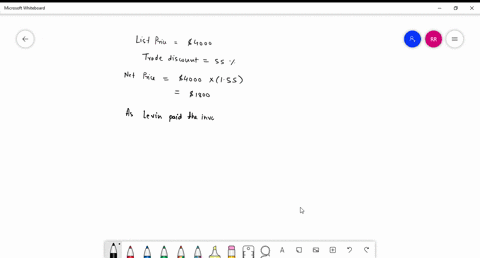 Microsoft Whiteboard
RR
List Price = $4000
Trade discount = 55 %
Net Price = $4000 x (1-55)
= $1800
As Levin paid the invo